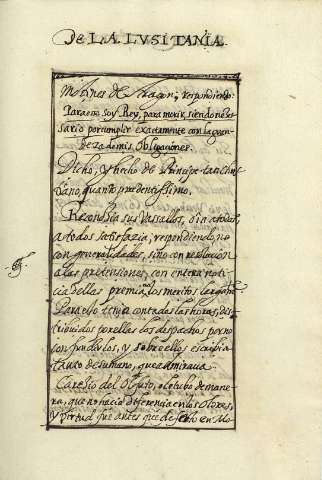 De LA LVSITANIA.
de Aragon, respondiendo:
Para esso soy Rey, para morir, siendo neces-
sario por cumplir exactamente con la gran-
deza de mis obligaciones.
Dicho, y hecho de Principe tan Chris-
tiano, quanto prudentissimo.
sus Vassallos, oia a todos,
a todos satisfazia; respondiendo, no
con generalidades, sino con resolucion
a las pretensiones, con entera noti-
cia dellas premiaua los meritos
Para ello tenia contadas las horas, dis-
tribuidos por ellas los despachos por no
confundirlos, y sobre ellos escribia
tanto de su mano, que admiraua.
Careciò del Olfato, o le tubo de mane-
ra, que no hacia diferencia en los Olores,
y virtud que antes que de